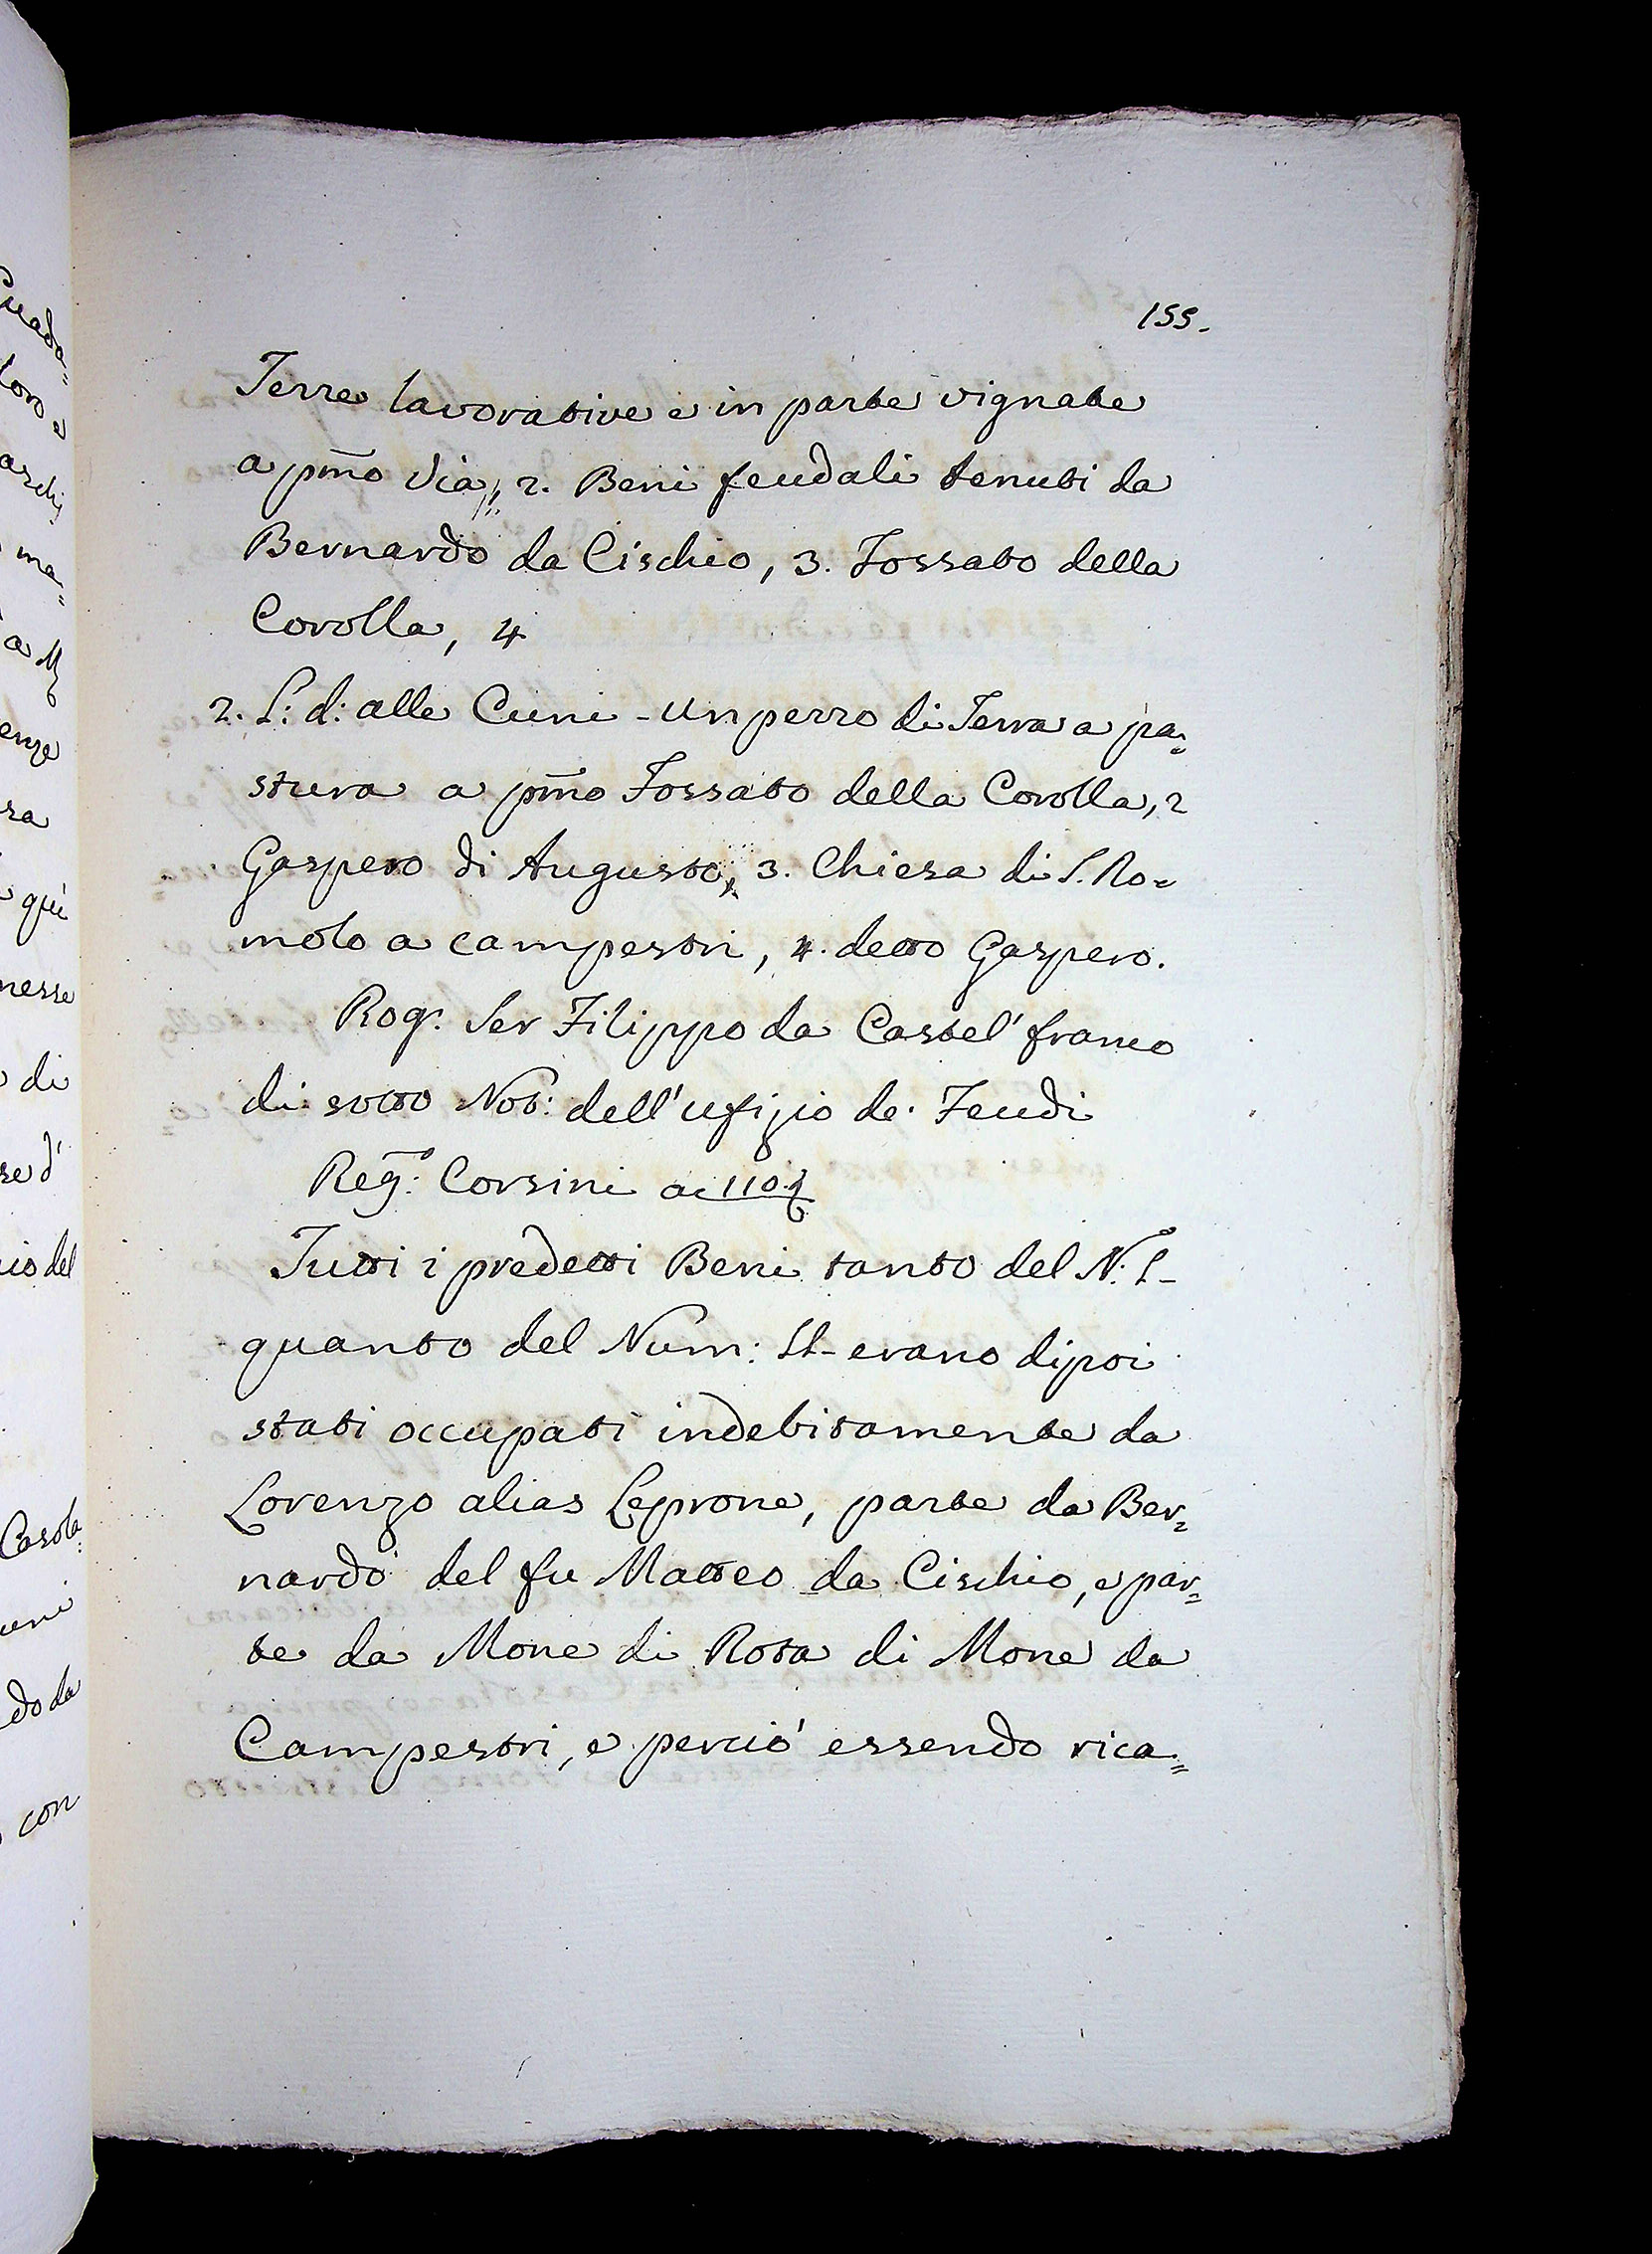 155.
Terre lavorative e in parte vignate
a pmo Via, 2. Beni feudali tenuti da
Bernardo da Cischio, 3. Fossato della
Corolla, 4
2. L: d: alle Cune - Un pezzo di Terra a pa=
stura a pmo Fossato della Corolla, 2
Gaspero di Augusto, 3. Chiesa di S. Ro=
molo a campestri, 4. detto Gaspero.
Rog. Ser Filippo da Castel' franco
di sotto Not: dell' ufizio de. Feudi
Rego: Corsini a 110.
Tutti i predetti Beni tanto del N. I-
quanto del Num: II- erano dipoi
stati occupati indebitamente da
Lorenzo alias Leprone, parte da Ber=
nardo del fu Matteo da Cischio, e par=
te da Mone di Rota di Mone da
Campestri, e perció essendo rica=